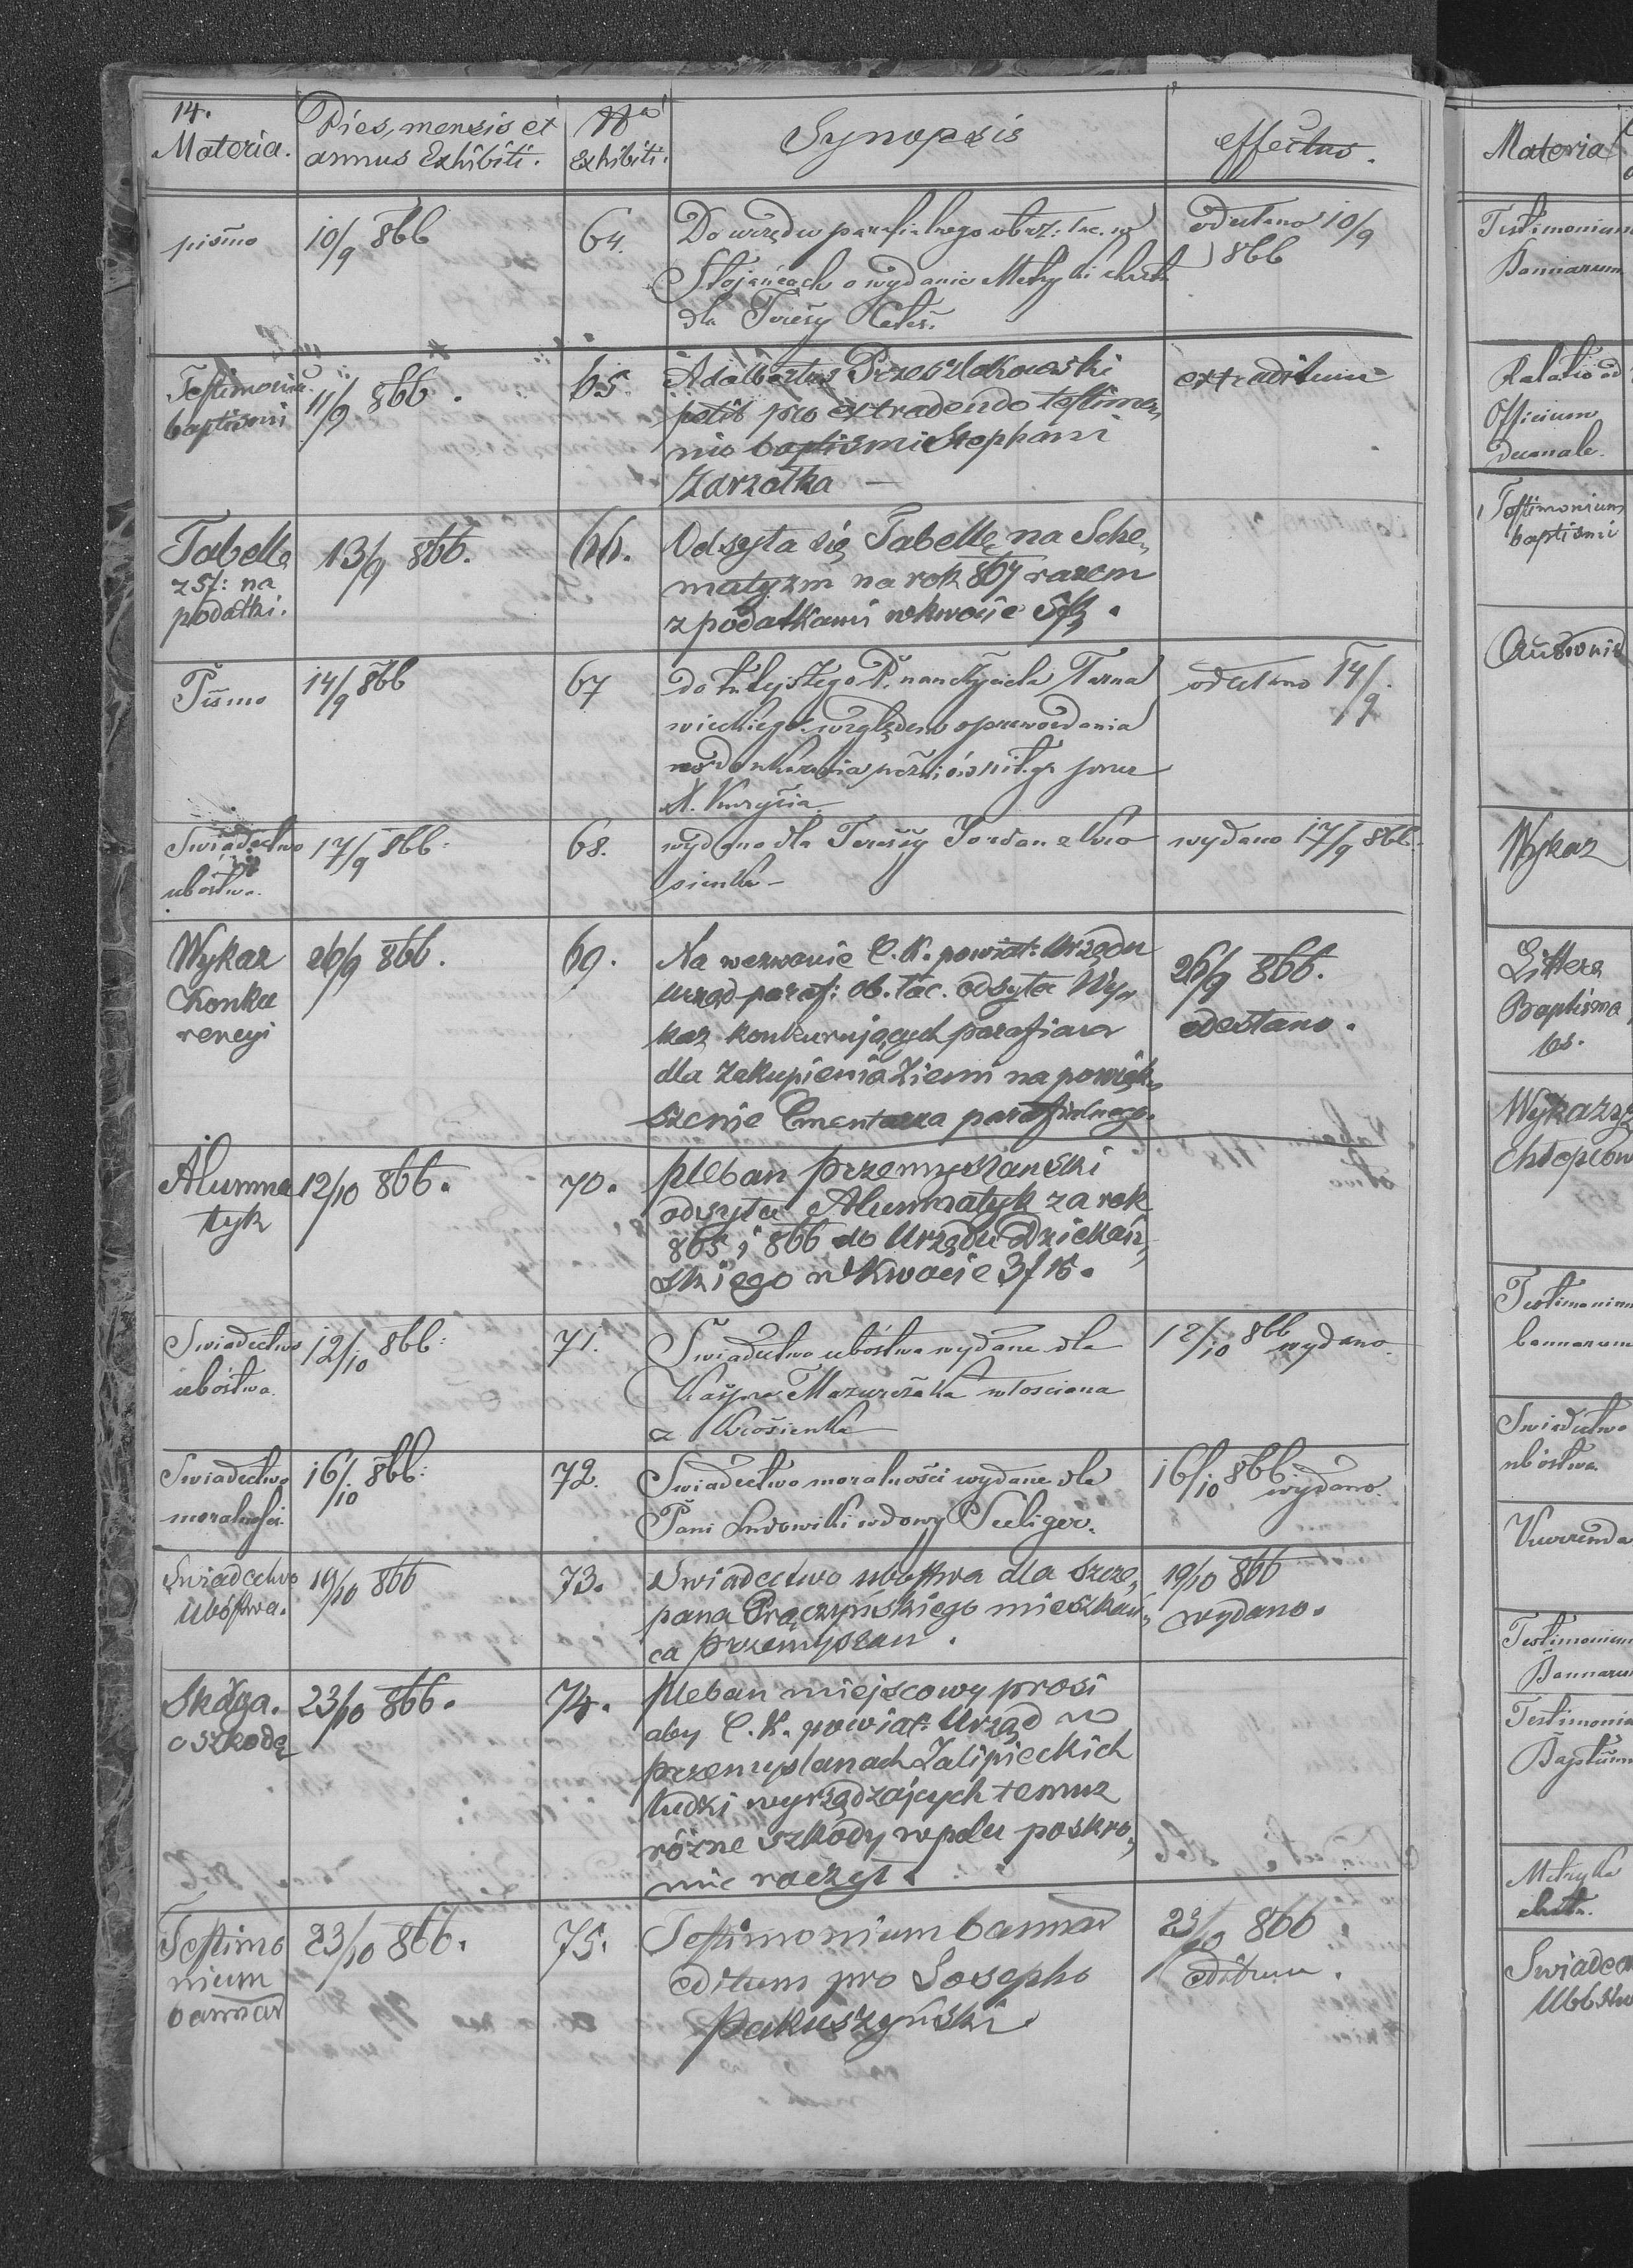 14.
Materia.
Dies, mensis et
annus Exhibiti.
Nrus
Exhibiti.
Synopsis
effectus.
pismo
10/9 866
64.
Do urzędu parafialnego obrz: łac. w
Stojańcach o wydanie Metryki chrztu
dla Teresy
odesłano 10/9
866
Testimonium
baptismi
11/9 866.
65.
Adalbertus Przeszlakowski
petit pro extradendo testimo„
nio baptismi Stephani
Zarzatka —
extraditum
Tabella
z 5f: na
podatki.
13/9 866.
66.
Odsyła się Tabellę na Sche„
matyzm na rok 867 razem
z podatkami w kwocie 5f
Pismo
14/9 866
67
do tutejszego P. nauczyciela Tarna
wieckiego względem sprawowania
nadonkarania uczniów przez
X. Kurzyja
odesłano 14/9
Swiadectwo
ubóstwa.
17/9 866.
68.
wydano dla Teressy Jordan z Kro
sienka —
wydano 17/9 866.
Wykaz
Konku
rencyi
26/9 866.
69.
Na wezwanie C. K. powiat: Urzędu
urząd paraf: ob. łac. odsyła Wy„
kaz konkurujących parafian
dla zakupienia Ziemi na powięk„
szenie Cmentarza parafialnego.
26/9 866.
odesłano.
Alumna
tyk
12/10 866.
70.
pleban przemyslański
odsyła Alumnatyk za rok
865 i 866 do Urzędu Dziekań„
skiego w Kwocie 3f 15.
Swiadectwo
ubóstwa.
12/10 866:
71.
Świadectwo ubóstwa wydane dla
Kaspra Mazurczaka włościana
z Krosienka
12/10 866
wydano.
Swiadectwo
moralności
16/10 866:
72.
Swiadectwo moralności wydane dla
Pani Ludowiki wdowy Seeliger.
16/10 866
wydano.
Świadectwo
Ubóstwa.
19/10 866
73.
Swiadectwo ubóstwa dla Szcze„
pana Prączyńskiego mieszkań„
ca Przemyslan.
19/10 866
wydano.
Skarga.
o szkodę
23/10 866.
74.
Pleban miejscowy prosi
aby C. K. powiat: Urząd w
Przemyslanach Zalipieckich
ludzi wyrządzających temuz
różne szkody w polu poskro„
mić raczył.
Testimo
nium
bannar
23/10 866.
75.
Testimonium bannar
editum pro Josepho
Pakuszyński
23/10 866
editum.
Materia
Testimonium
Bannarum
Relatio ad
Officium
decanale.
Testimonium
baptismi
Wykaz
Littera
Baptisma
Wykazy
chłopców
Testimonium
bannarum
Swiadectwo
ubóstwa.
Kurrenda
Testimonium
Bannarum
Testimonia
Baptism
Metryka
chrztu.
Swiadec
Ubóstw